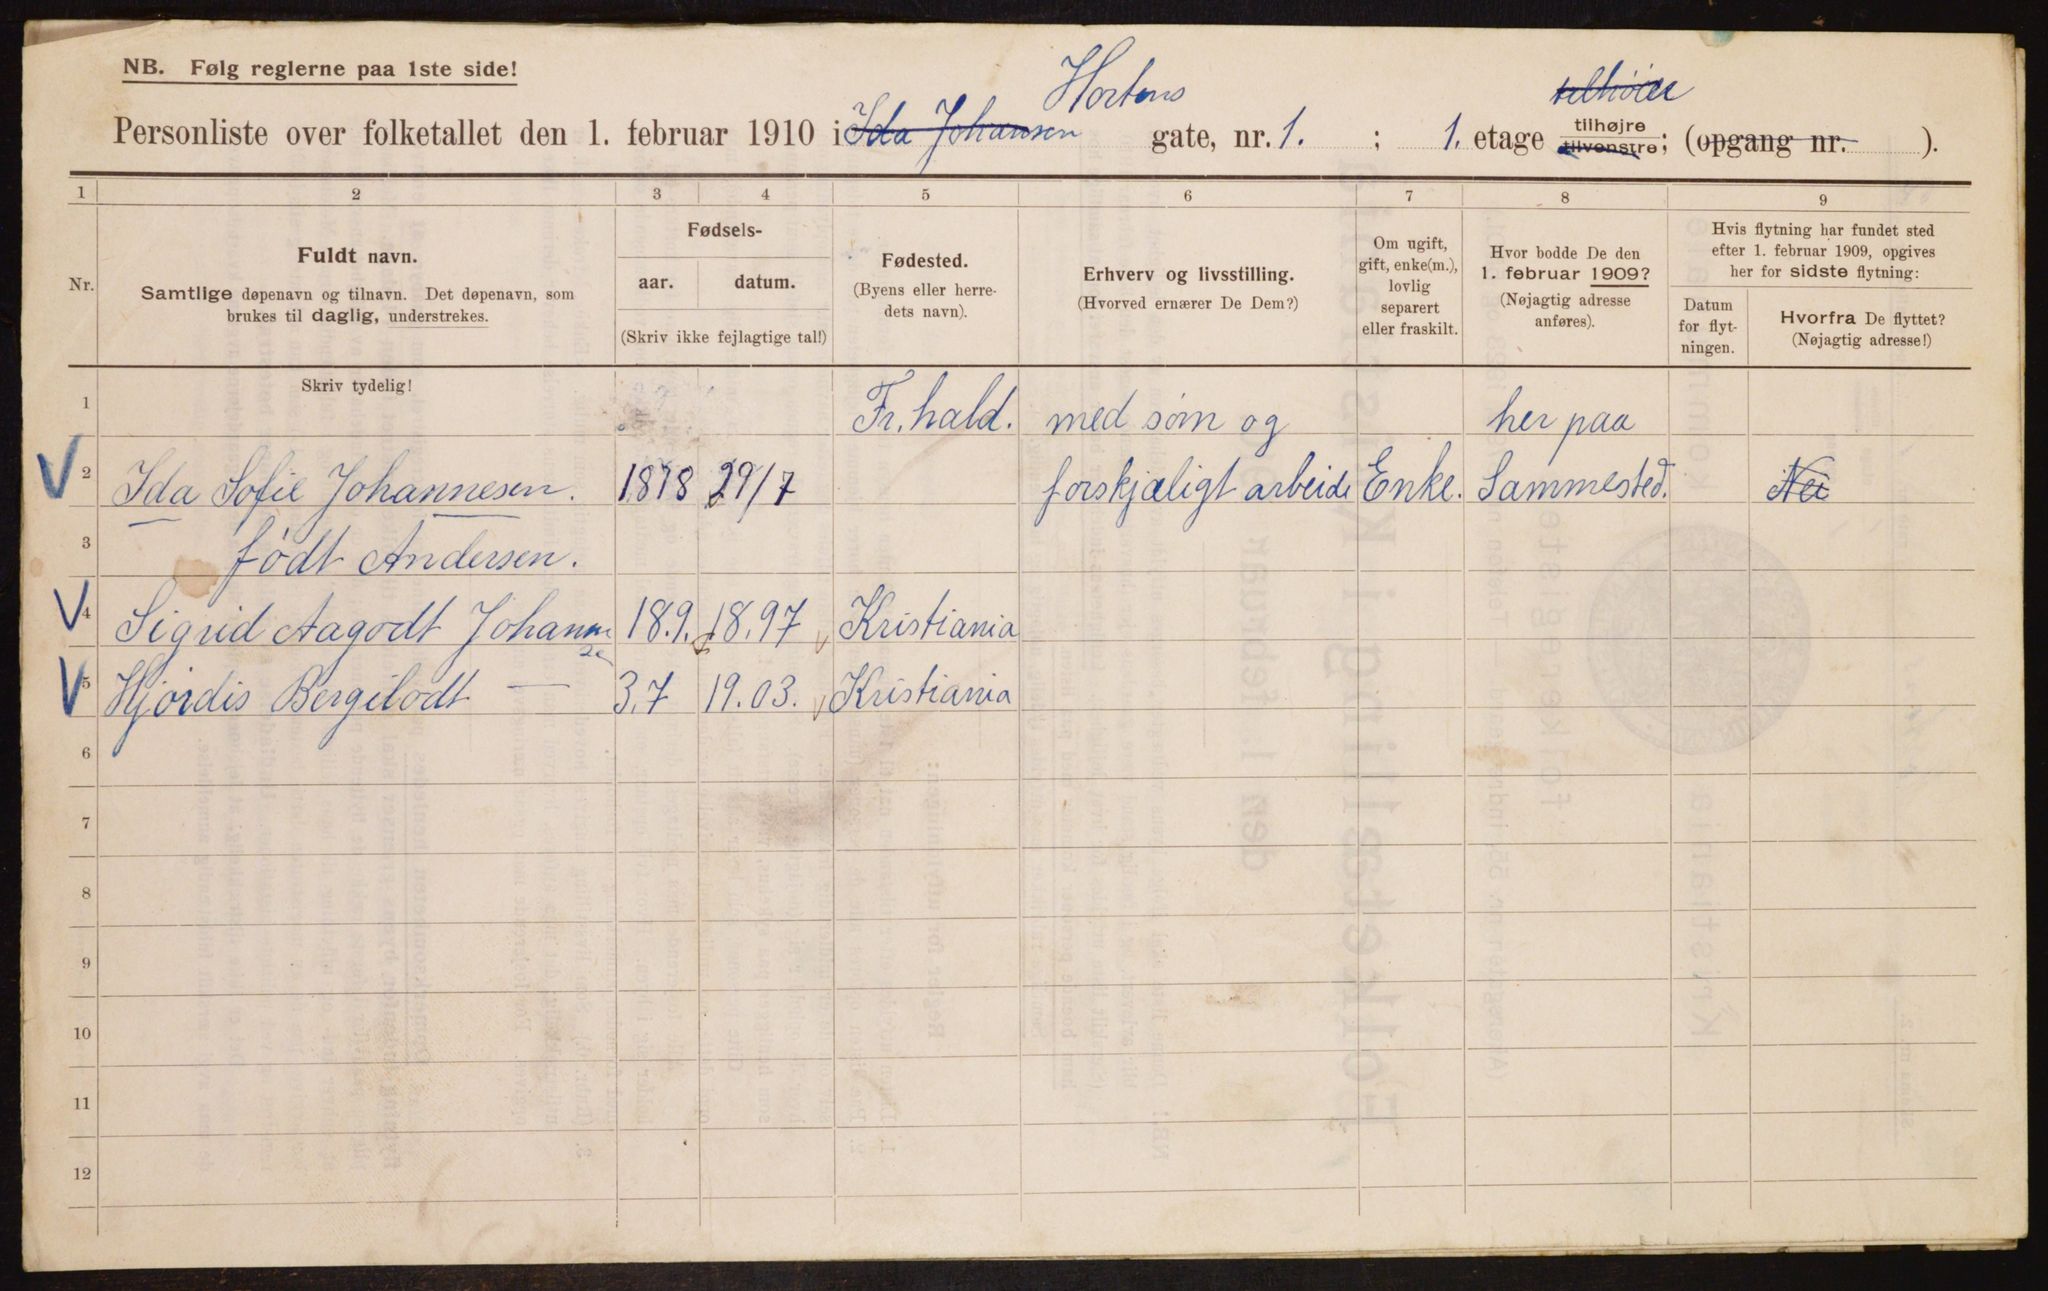 NB. Følg reglerne paa 1ste side!
Hortens
tilhøire
Personliste over folketallet den 1. februar 1910 i Ida Johansen gate, nr. 1. ; 1. etage tilhøjre tilvenstre; (opgang nr. ).
1 2 3 4 5 6 7 8 9
Nr.
Fuldt navn.
Samtlige døpenavn og tilnavn. Det døpenavn, som
brukes til daglig, understrekes.
Fødsels-
aar. datum.
(Skriv ikke fejlagtige tal!)
Fødested.
(Byens eller herre-
dets navn).
Erhverv og livsstilling.
(Hvorved ernærer De Dem?)
Om ugift,
gift, enke(m.),
lovlig
separert
eller fraskilt.
Hvor bodde De den
1. februar 1909?
(Nøjagtig adresse
anføres).
Hvis flytning har fundet sted
efter 1. februar 1909, opgives
her for sidste flytning:
Datum
for flyt-
ningen.
Hvorfra De flyttet?
(Nøjagtig adresse!)
Skriv tydelig!
1 Fr.hald. med søm og her paa
2 Ida Sofie Johannesen. 1878 29/7 forskjæligt arbeide Enke. Sammested. Nei
3 født Andersen.
4 Sigrid Aagodt Johannesen 18.9. 18.97 Kristiania
5 Hjørdis Bergilodt — 3.7 19.03. Kristiania
6
7
8
9
10
11
12